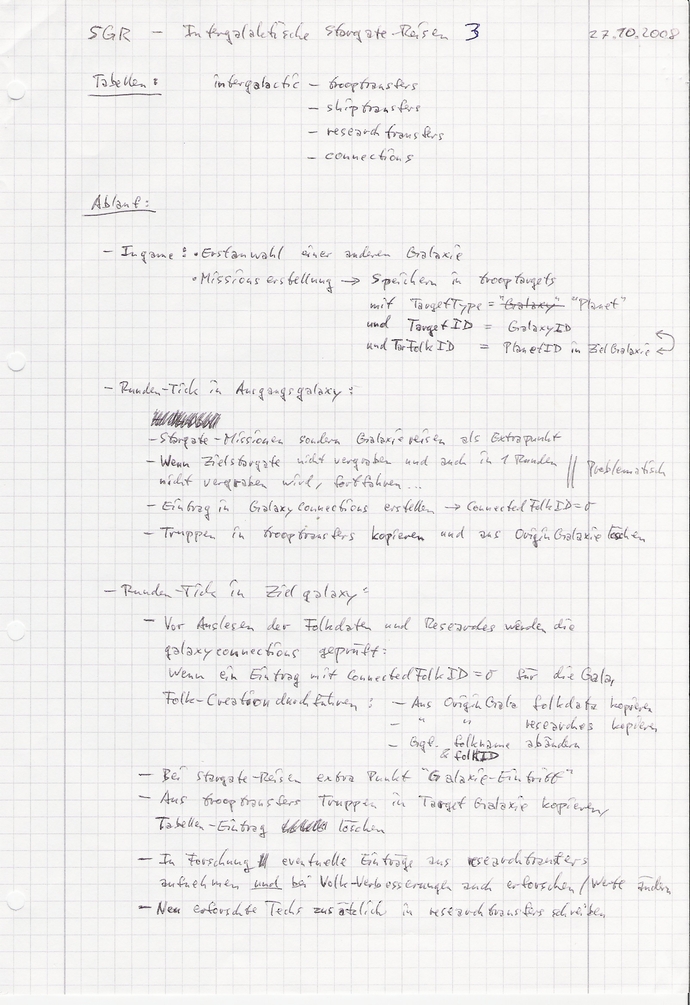 SGR – Intergalaktische Stargate-Reisen 3 27.10.2008
Tabellen: intergalactic – trooptransfers
– shiptransfers
– researchtransfers
– connections
Ablauf:
– Ingame: • Erstanwahl einer anderen Galaxie
• Missionserstellung → Speichern in trooptargets
mit TargetType = "Galaxy" "Planet"
und TargetID = GalaxyID
und TarFolkID = PlanetID in ZielGalaxie
– Runden-Tick in Ausgangsgalaxy:
– Stargate-Missionen sondern Galaxiereisen als Extrapunkt
– Wenn Zielstargate nicht vergraben und auch in 1 Runden || Problematisch
nicht vergraben wird, fortfahren...
– Eintrag in Galaxyconnections erstellen → ConnectedFolkID=0
– Truppen in trooptransfers kopieren und aus OriginGalaxie löschen
– Runden-Tick in Zielgalaxy:
– Vor Auslesen der Folkdaten und Researches werden die
galaxyconnections geprüft:
Wenn ein Eintrag mit ConnectedFolkID=0 für die Gala,
Folk-Creation durchführen: – Aus OriginGala folkdata kopieren
– " " researches kopieren
– Ggf. folkname abändern
& folkID
– Bei Stargate-Reisen extra Punkt "Galaxie-Eintritt"
– Aus trooptransfers Truppen in Target Galaxie kopieren,
Tabellen-Eintrag löschen
– In Forschung eventuelle Einträge aus researchtransfers
aufnehmen und bei Volk-Verbesserungen auch erforschen/Werte ändern
– Neu erforschte Techs zusätzlich in researchtransfers schreiben